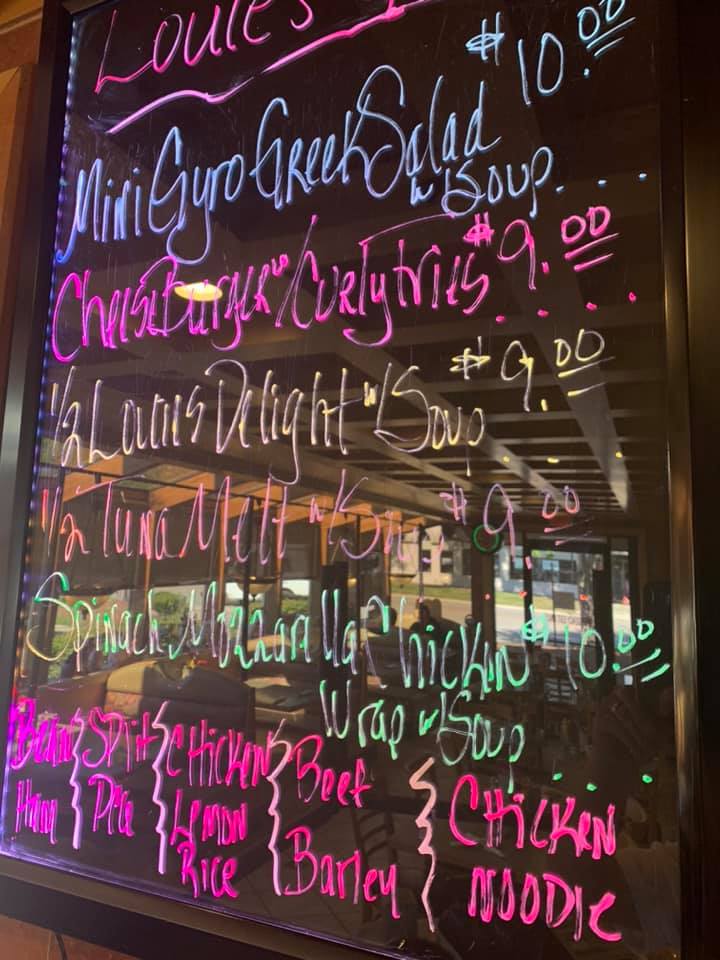 Louie's
Mini Gyro Greek Salad $10.00
w/Soup....
CheeseBurger w/Curly Fries $9.00
1/2 Louies Delight w/Soup $9.00
1/2 Tuna Melt w/Soup $9.00
Spinach Mozzarella Chicken $10.00
Wrap w/Soup....
Bean Split Chicken Beef Chicken
Ham Pea Lemon Barley Noodle
Rice